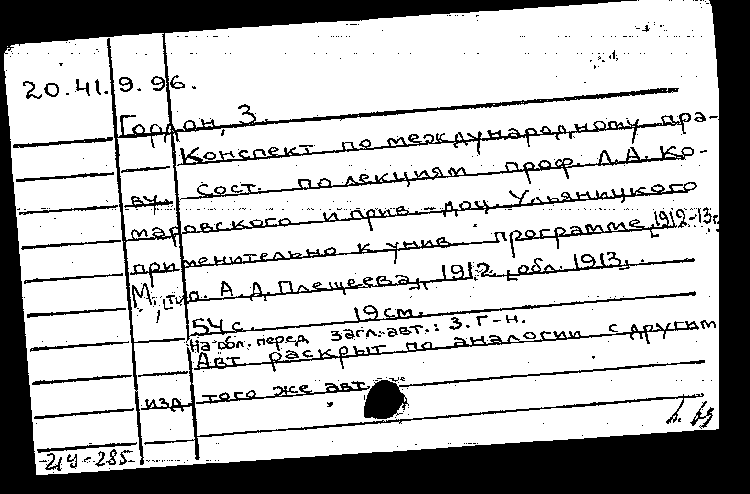 20.41.9.96.
Гордон, З.
Конспект по международному пра-
ву. Сост. по лекциям проф. Л.А. Ко-
маровского и прив.-доц. Ульяницкого
применительно к унив. программе 1912-13г.
М., тип. А.Д. Плещеева, 1912 [обл. 1913].
54 с. 19 см.
На обл. перед загл. авт.: З. Г-н.
Авт. раскрыт по аналогии с другим
изд. того же авт.